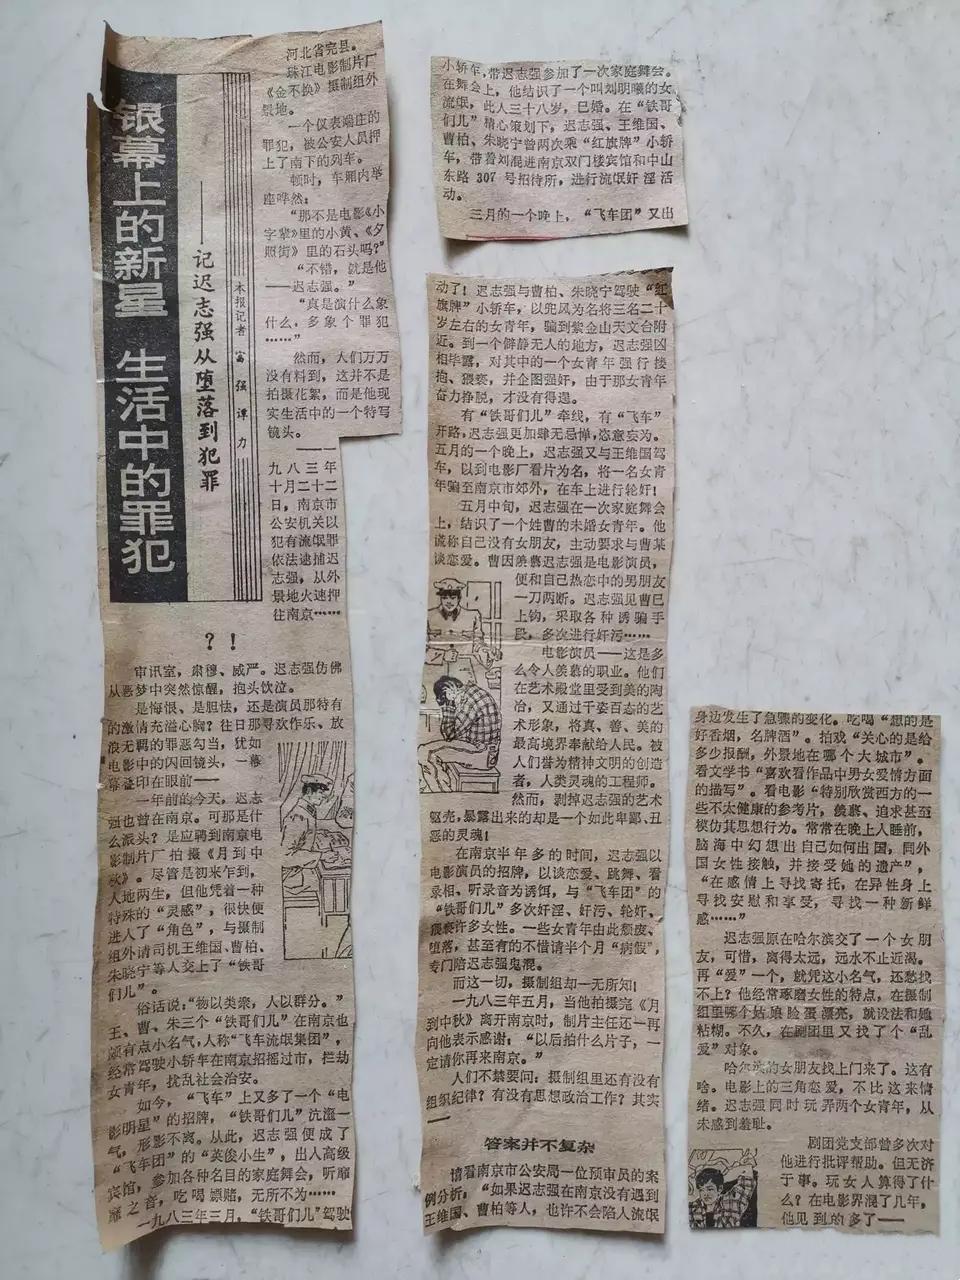 银幕上的新星 生活中的罪犯
——记迟志强从堕落到犯罪
本报记者 富强 谭力
河北省完县。
珠江电影制片厂
《金不换》摄制组外
景地。
一个仪表端庄的
罪犯，被公安人员押
上了南下的列车。
顿时，车厢内举
座哗然：
“那不是电影《小
字辈》里的小黄、《夕
照街》里的石头吗？”
“不错，就是他
——迟志强。”
“真是演什么象
什么，多象个罪犯
……”
然而，人们万万
没有料到，这并不是
拍摄花絮，而是他现
实生活中的一个特写
镜头。
一
九八三年
十月二十二
日，南京市
公安机关以
犯有流氓罪
依法逮捕迟
志强，从外
景地火速押
往南京……
？！
审讯室，肃穆、威严。迟志强仿佛
从恶梦中突然惊醒，抱头饮泣。
是悔恨、是胆怯，还是演员那特有
的激情充溢心胸？往日那寻欢作乐、放
浪无羁的罪恶勾当，犹如
电影中的闪回镜头，一幕
幕叠印在眼前——
一年前的今天，迟志
强也曾在南京。可那是什
么派头？是应聘到南京电
影制片厂拍摄《月到中
秋》。尽管是初来乍到，
人地两生，但他凭着一种
特殊的“灵感”，很快便
进入了“角色”，与摄制
组外请司机王维国、曹柏、
朱晓宁等人交上了“铁哥
们儿”。
俗话说，“物以类聚，人以群分。”
王、曹、朱三个“铁哥们儿”在南京也
颇有点小名气，人称“飞车流氓集团”，
经常驾驶小轿车在南京招摇过市，拦劫
女青年，扰乱社会治安。
如今，“飞车”上又多了一个“电
影明星”的招牌，“铁哥们儿”沆瀣一
气，形影不离。从此，迟志强便成了
“飞车团”的“英俊小生”，出入高级
宾馆，参加各种名目的家庭舞会，听靡
靡之音，吃喝嫖赌，无所不为……
一九八三年三月，“铁哥们儿”驾驶
小轿车，带迟志强参加了一次家庭舞会。
在舞会上，他结识了一个叫刘明曦的女
流氓，此人三十八岁，已婚。在“铁哥
们儿”精心策划下，迟志强、王维国、
曹柏、朱晓宁曾两次乘“红旗牌”小轿
车，带着刘混进南京双门楼宾馆和中山
东路307号招待所，进行流氓奸淫活
动。
三月的一个晚上，“飞车团”又出
动了！迟志强与曹柏、朱晓宁驾驶“红
旗牌”小轿车，以兜风为名将三名二十
岁左右的女青年，骗到紫金山天文台附
近。到一个僻静无人的地方，迟志强凶
相毕露，对其中的一个女青年强行搂
抱、猥亵，并企图强奸，由于那女青年
奋力挣脱，才没有得逞。
有“铁哥们儿”牵线，有“飞车”
开路，迟志强更加肆无忌惮，恣意妄为。
五月的一个晚上，迟志强又与王维国驾
车，以到电影厂看片为名，将一名女青
年骗至南京市郊外，在车上进行轮奸！
五月中旬，迟志强在一次家庭舞会
上，结识了一个姓曹的未婚女青年。他
谎称自己没有女朋友，主动要求与曹某
谈恋爱。曹因羡慕迟志强是电影演员，
便和自己热恋中的男朋友
一刀两断。迟志强见曹已
上钩，采取各种诱骗手
段，多次进行奸污……
电影演员——这是多
么令人羡慕的职业。他们
在艺术殿堂里受到美的陶
冶，又通过千姿百态的艺
术形象，将真、善、美的
最高境界奉献给人民。被
人们誉为精神文明的创造
者，人类灵魂的工程师。
然而，剥掉迟志强的艺术
躯壳，暴露出来的却是一个如此卑鄙、丑
恶的灵魂！
在南京半年多的时间，迟志强以
电影演员的招牌，以谈恋爱、跳舞、看
录相、听录音为诱饵，与“飞车团”的
“铁哥们儿”多次奸淫、奸污、轮奸、
猥亵许多女性。一些女青年由此颓废、
堕落，甚至有的不惜请半个月“病假”，
专门陪迟志强鬼混。
而这一切，摄制组却一无所知！
一九八三年五月，当他拍摄完《月
到中秋》离开南京时，制片主任还一再
向他表示感谢：“以后拍什么片子，一
定请你再来南京。”
人们不禁要问：摄制组里还有没有
组织纪律？有没有思想政治工作？其实
——
答案并不复杂
请看南京市公安局一位预审员的案
例分析：“如果迟志强在南京没有遇到
王维国、曹柏等人，也许不会陷入流氓
身边发生了急骤的变化。吃喝“想的是
好香烟，名牌酒”。拍戏“关心的是给
多少报酬，外景地在哪个大城市”。
看文学书“喜欢看作品中男女爱情方面
的描写”。看电影“特别欣赏西方的一
些不太健康的参考片，羡慕、追求甚至
模仿其思想行为。常常在晚上入睡前，
脑海中幻想出自己如何出国，同外
国女性接触，并接受她的遗产”，
“在感情上寻找寄托，在异性身上
寻找安慰和享受，寻找一种新鲜
感……”
迟志强原在哈尔滨交了一个女朋
友，可惜，离得太远，远水不止近渴。
再“爱”一个，就凭这小名气，还愁找
不上？他经常琢磨女性的特点，在摄制
组里哪个姑娘脸蛋漂亮，就设法和她
粘糊。不久，在剧团里又找了个“乱
爱”对象。
哈尔滨的女朋友找上门来了。这有
啥。电影上的三角恋爱，不比这来情
绪。迟志强同时玩弄两个女青年，从
未感到羞耻。
剧团党支部曾多次对
他进行批评帮助。但无济
于事。玩女人算得了什
么？在电影界混了几年，
他见到的多了——